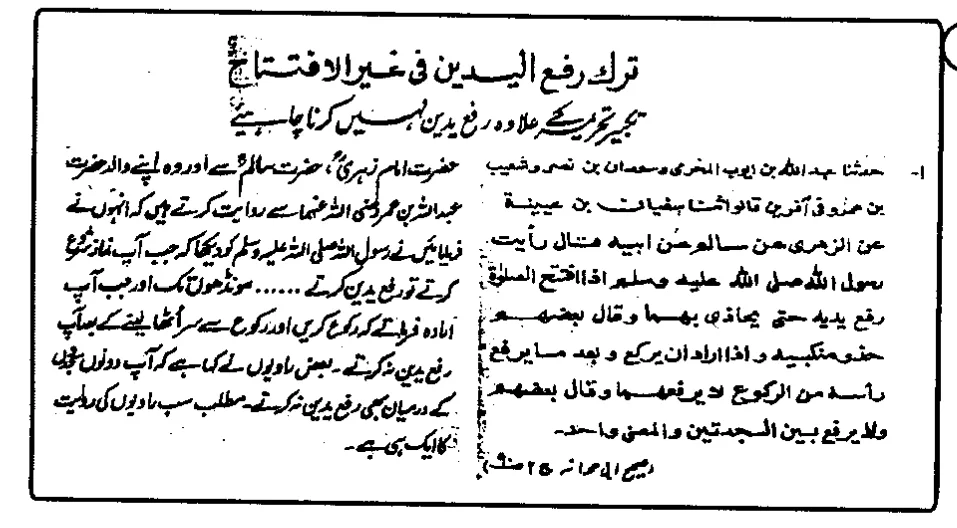 ترك رفع اليدين فى غير الافتتاح
تکبیر تحریمہ کے علاوہ رفع یدین نہیں کرنا چاہیئے
۱- حدثنا عبد الله بن ايوب المخرمى وسعدان بن نصر وشعيب
بن عمرو فى آخرين قالوا ثنا سفيان بن عيينة
عن الزهرى عن سالم عن ابيه قال رأيت
رسول الله صلى الله عليه وسلم اذا افتتح الصلوٰة
رفع يديه حتى يحاذى بهما وقال بعضهم
حذو منكبيه واذا اراد ان يركع وبعد ما يرفع
رأسه من الركوع لا يرفعهما وقال بعضهم
ولا يرفع بين السجدتين والمعنى واحد-
(صحیح ابی عوانہ ج ۲ صـ۹۰)
حضرت امام زہریؒ، حضرت سالمؒ سے اور وہ اپنے والد حضرت
عبداللہ بن عمر رضی اللہ عنہما سے روایت کرتے ہیں کہ انہوں نے
فرمایا میں نے رسول اللہ صلی اللہ علیہ وسلم کو دیکھا کہ جب آپ نماز شروع
کرتے تو رفع یدین کرتے ...... مونڈھوں تک اور جب آپ
ارادہ فرماتے کہ رکوع کریں اور رکوع سے سر اٹھا لینے کے بعد آپ
رفع یدین نہ کرتے۔ بعض راویوں نے کہا ہے کہ آپ دونوں سجدوں
کے درمیان بھی رفع یدین نہ کرتے۔ مطلب سب راویوں کی روایت
کا ایک ہی ہے۔